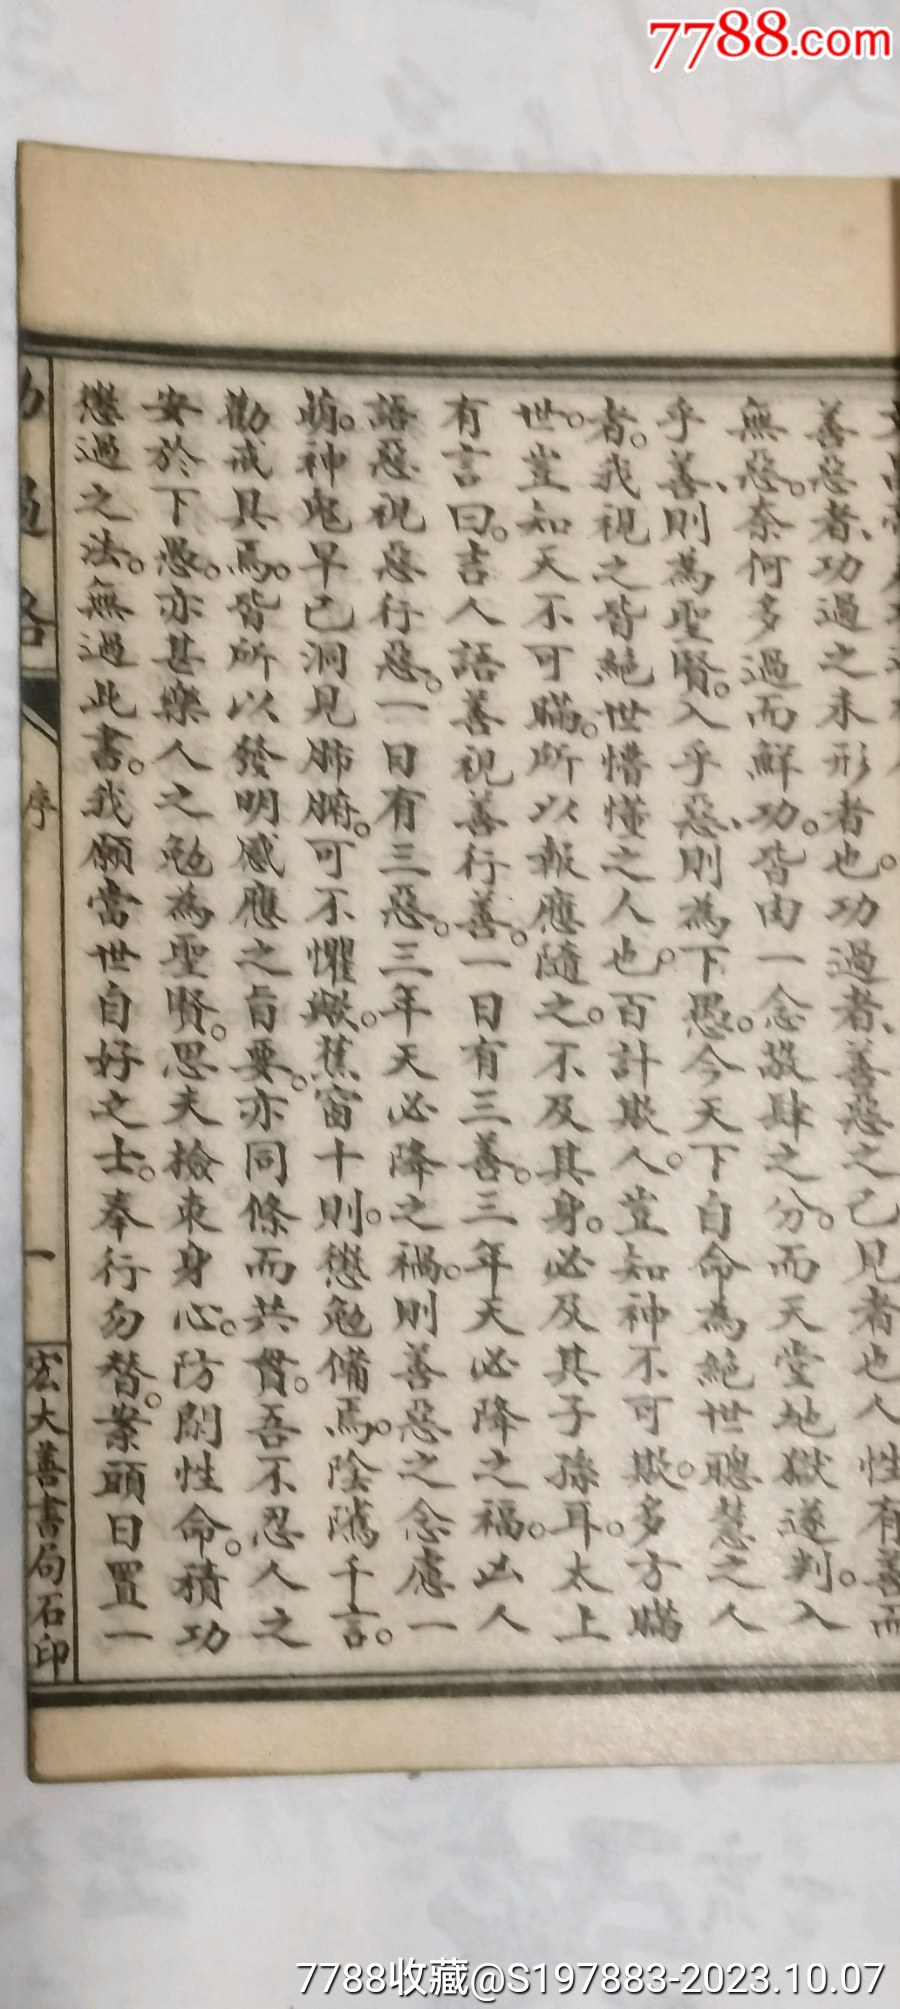 7788.com
善惡者、功過之未形者也。功過者、善惡之已見者也人性有善而
無惡。奈何多過而鮮功。皆由一念敬肆之分。而天堂地獄遂判。入
乎善、則為聖賢。入乎惡、則為下愚。今天下自命為絕世聰慧之人
者。我視之皆絕世懵懂之人也。百計欺人。豈知神不可欺。多方瞞
世。豈知天不可瞞。所以報應隨之。不及其身。必及其子孫耳。太上
有言曰。吉人語善視善行善。一日有三善。三年天必降之福。凶人
語惡視惡行惡。一日有三惡。三年天必降之禍。則善惡之念慮一
萌。神鬼早已洞見肺腑。可不懼歟。蕉窗十則。懋勉備焉。陰隲千言。
勸戒具焉。皆所以發明感應之旨要。亦同條而共貫。吾不忍人之
安於下愚。亦甚樂人之勉為聖賢。思夫檢束身心。防閑性命。積功
懲過之法。無過此書。我願當世自好之士。奉行勿替。案頭日置一
功過格
序
一
宏大善書局石印
7788收藏@S197883-2023.10.07